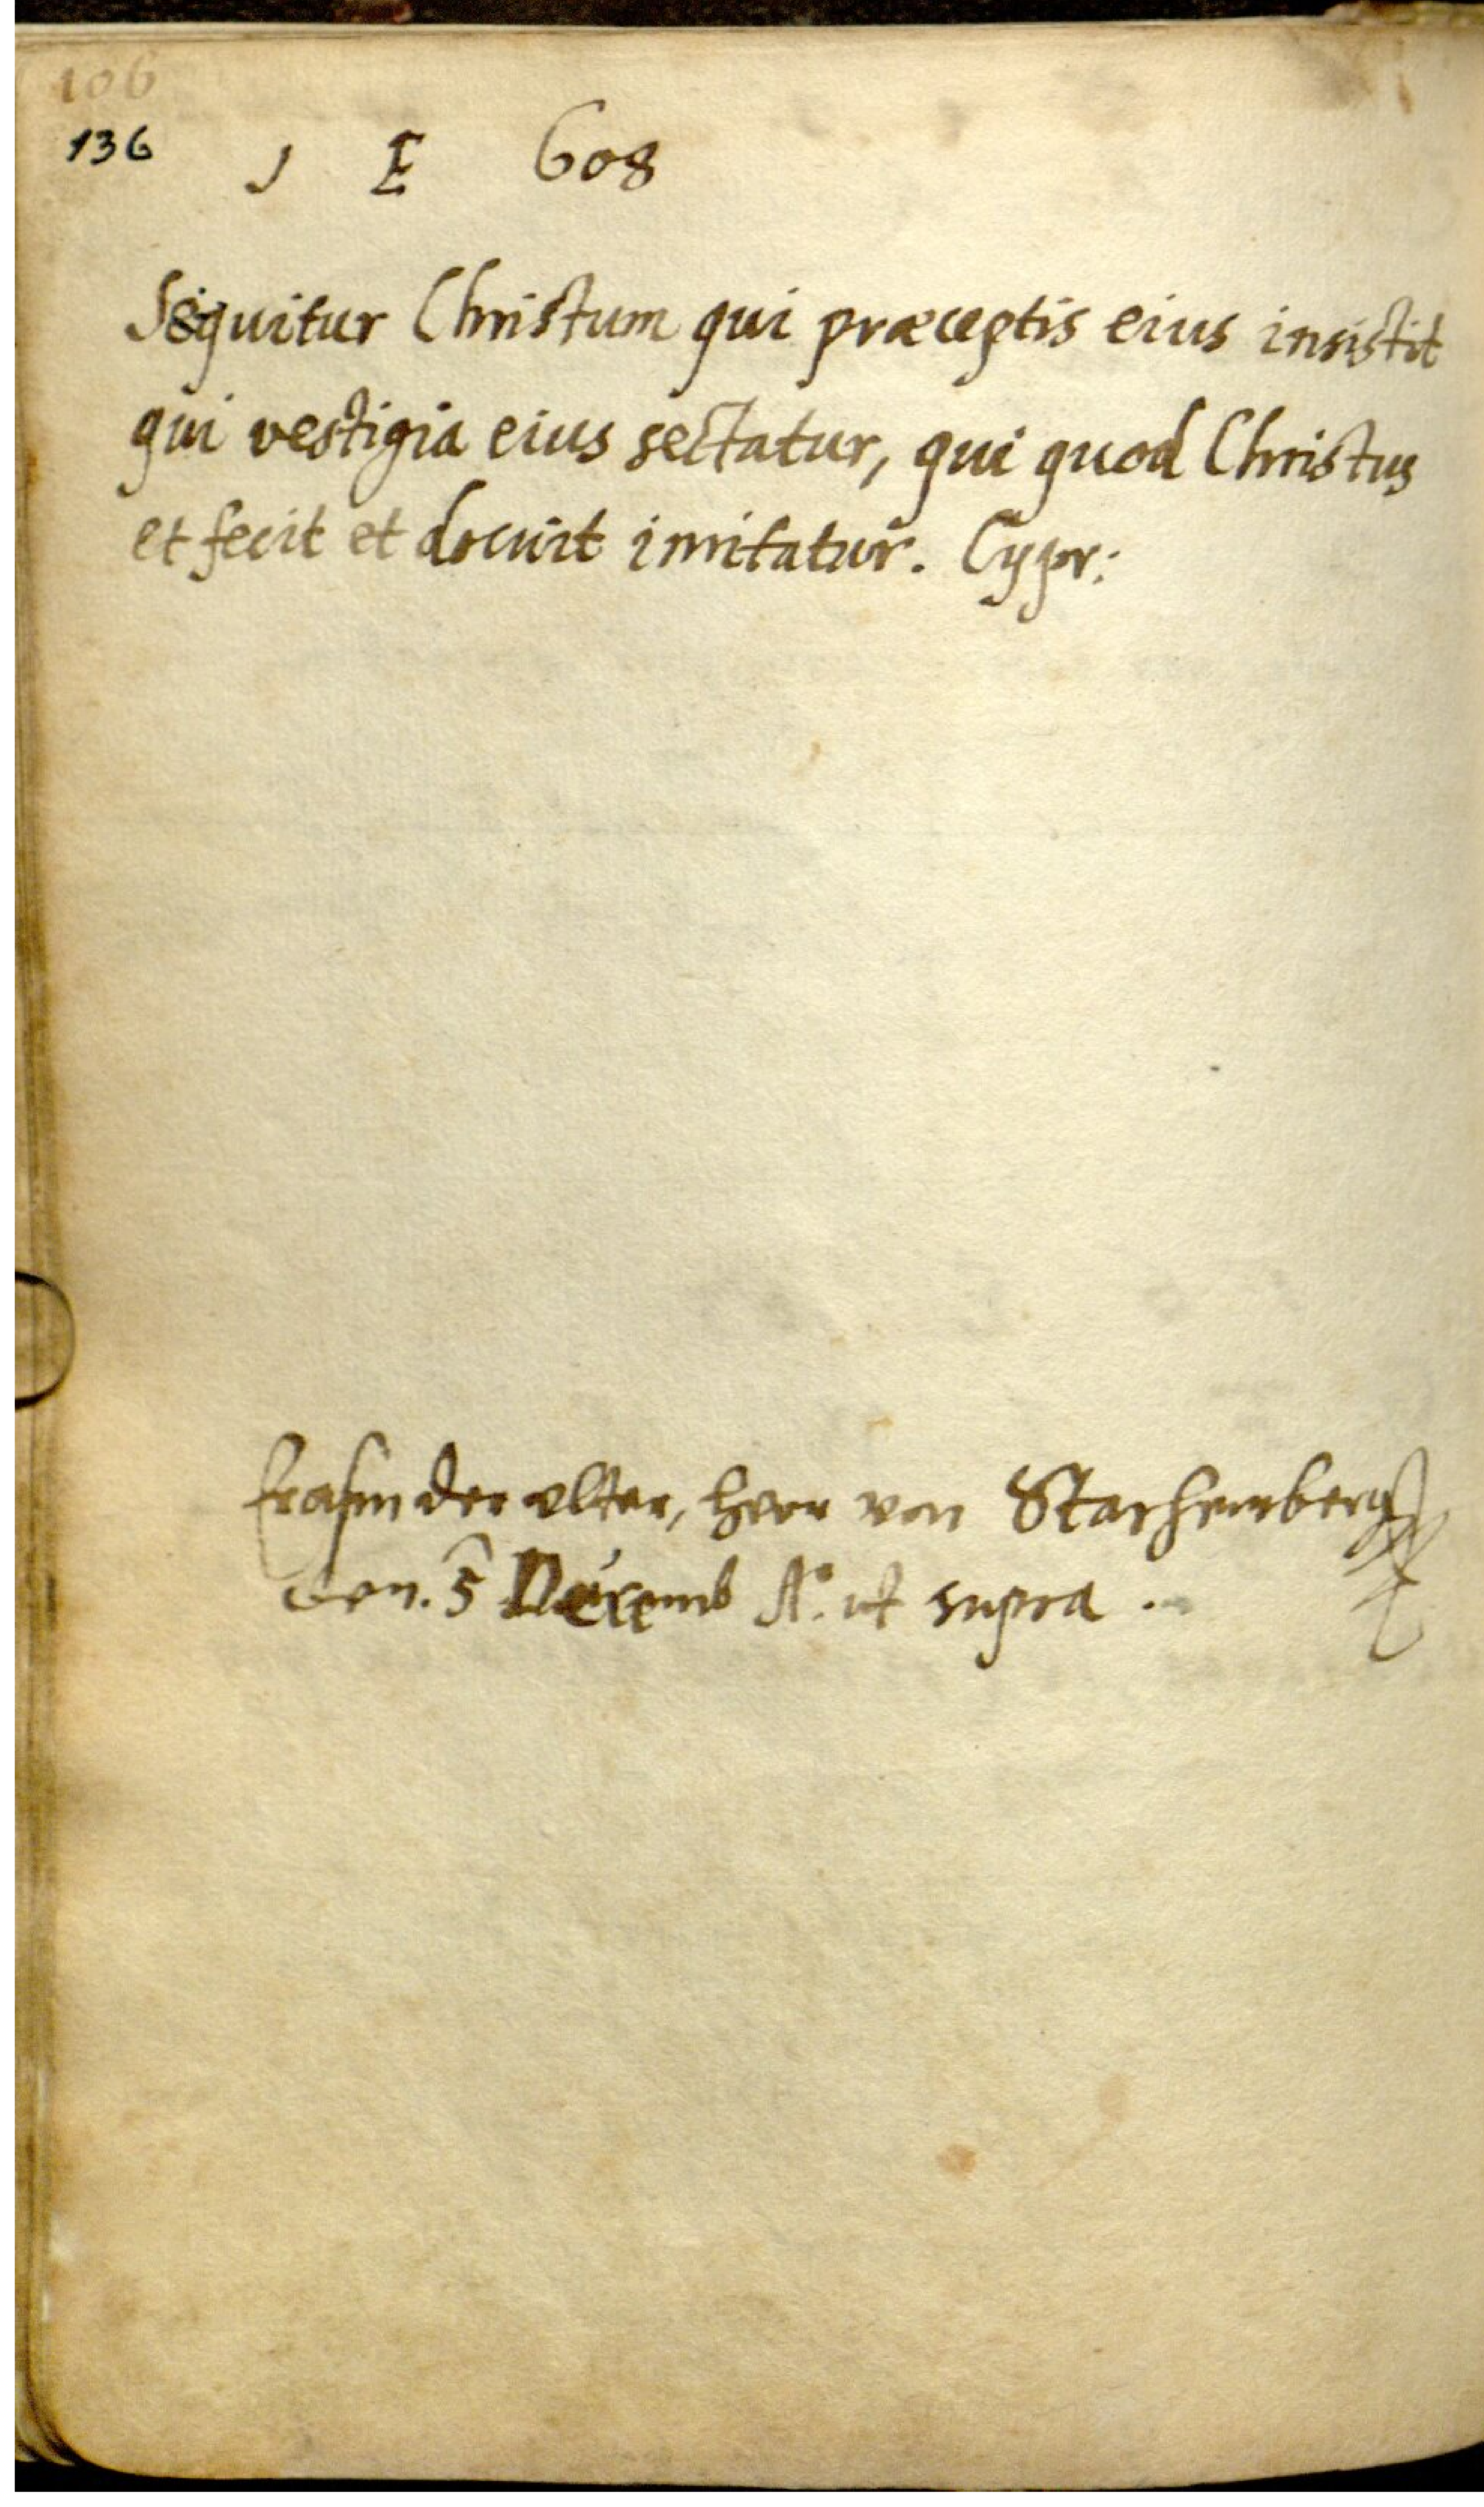 106
136 J E 608
Sequitur Christum qui præceptis eius insistit
qui vestigia eius sectatur, qui quod Christus
et fecit et docuit imitatur. Cypr:
Erasm der elter, herr von Starhemberg
den. 5 Decemb A°. ut supra .